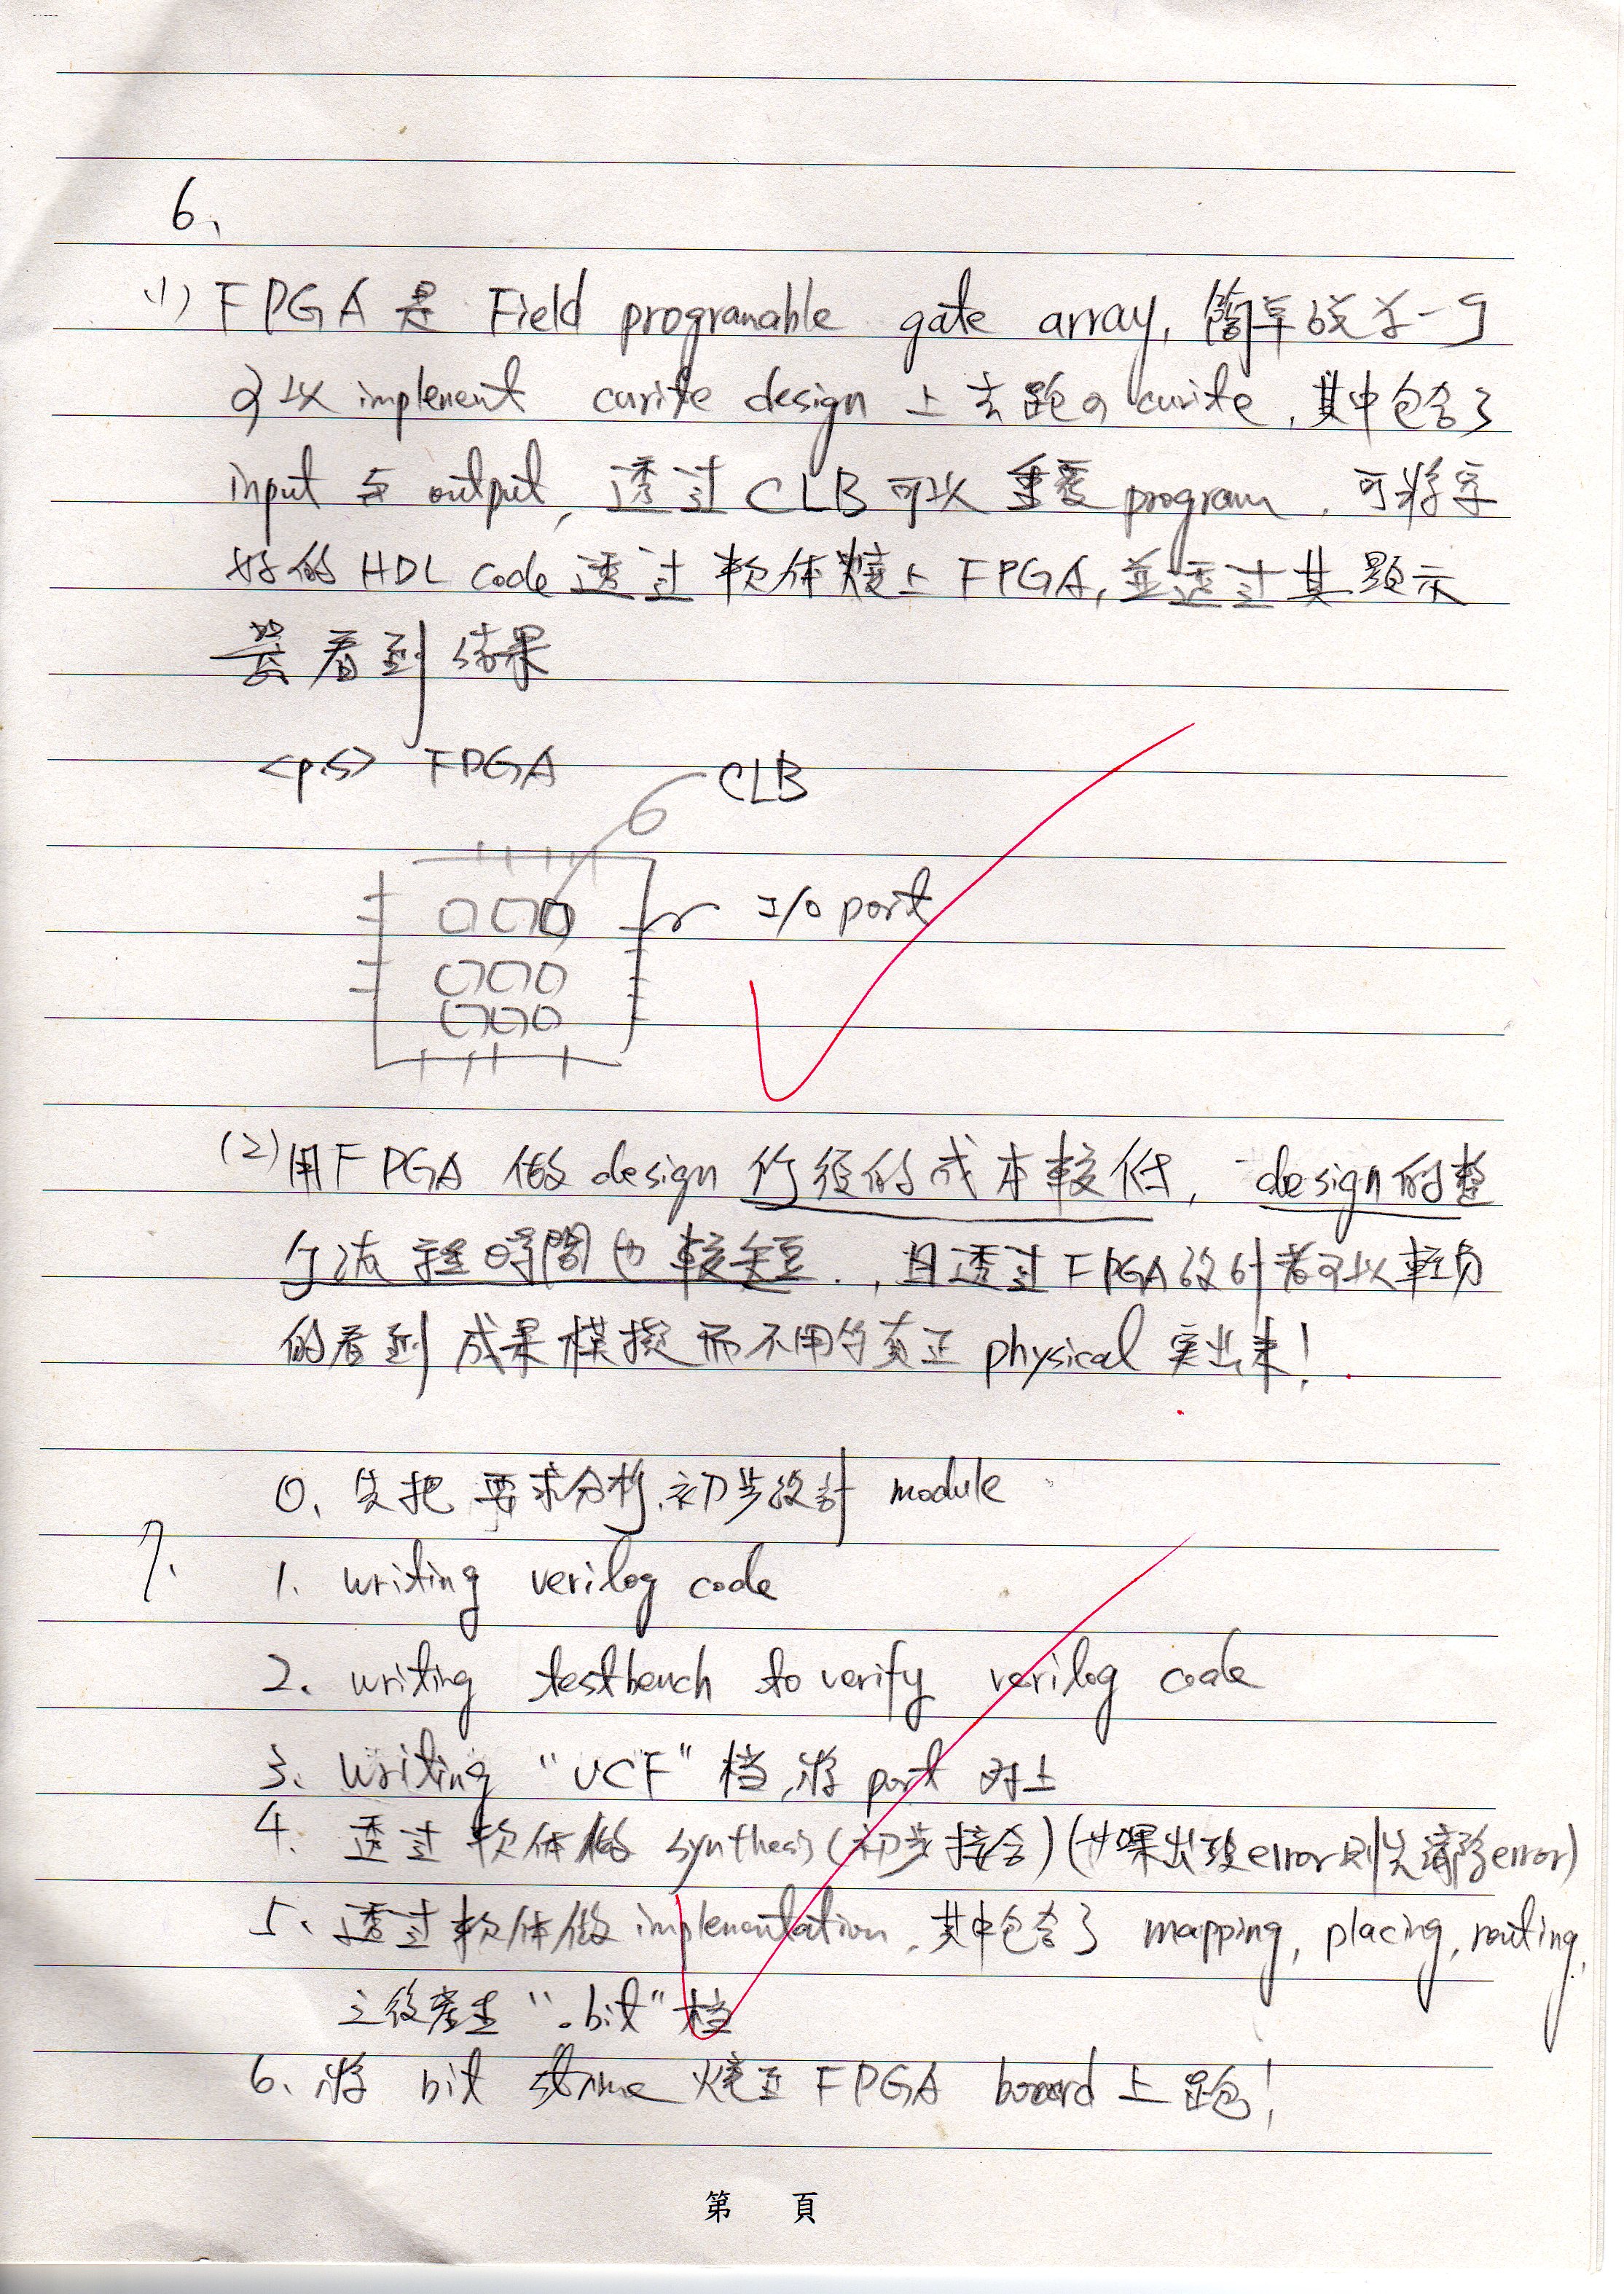 6、
(1) FPGA 是 Field programable gate array, 簡單說是一个
可以 implement curite design 上去跑の curite, 其中包含了
input 与 output, 透过 CLB 可以 重覆 program, 可將寫
好的 HDL code 透过 軟体燒上 FPGA, 並透过其顯示
裝看到 结果
<p.s> FPGA
CLB
I/O port
(2) 用FPGA 做 design 的成本較低, design的整
个流程時間也較短, 且透过FPGA設計者可以輕易
的看到 成果模擬 而不用的真正 physical 實出來!
0、先把 要求分析,初步設計 module
7.
1. writing verilog code
2. writing testbench to verify verilog code
3. writing "UCF" 档,將 port 对上
4. 透过軟体做 synthesis (初步接合) (如果出現error則先清除error)
5、透过軟体做 implementation, 其中包含了 mapping, placing, routing,
之後產生 ".bit" 档
6、將 bit 燒至 FPGA board 上跑!
第 頁